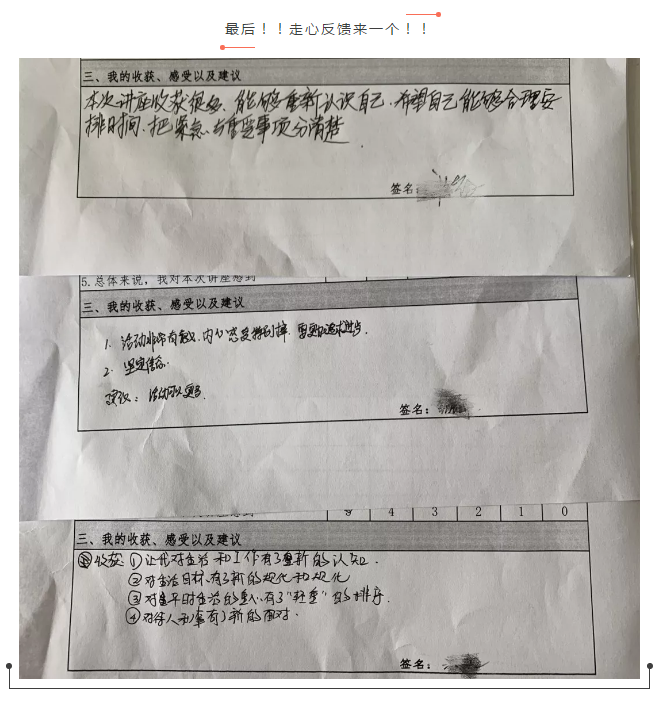 最后！！走心反馈来一个！！
三、我的收获、感受以及建议
本次讲座收获很多、能够重新认识自己.希望自己能够合理安
排时间.把紧急与重要事项分清楚.
签名：
5.总体来说，我对本次讲座感到
三、我的收获、感受以及建议
1. 活动非常有意义.内心感受特别棒.
2. 坚定信念.
建议：活动可以更多.
签名：
9 4 3 2 1 0
三、我的收获、感受以及建议
收获：①让我对生活和工作有了重新的认知.
②对生活目标有了新的规化和规化
③对生平时生活的重心有了"轻重"的排序.
④对待人和事有了新的面对.
签名：